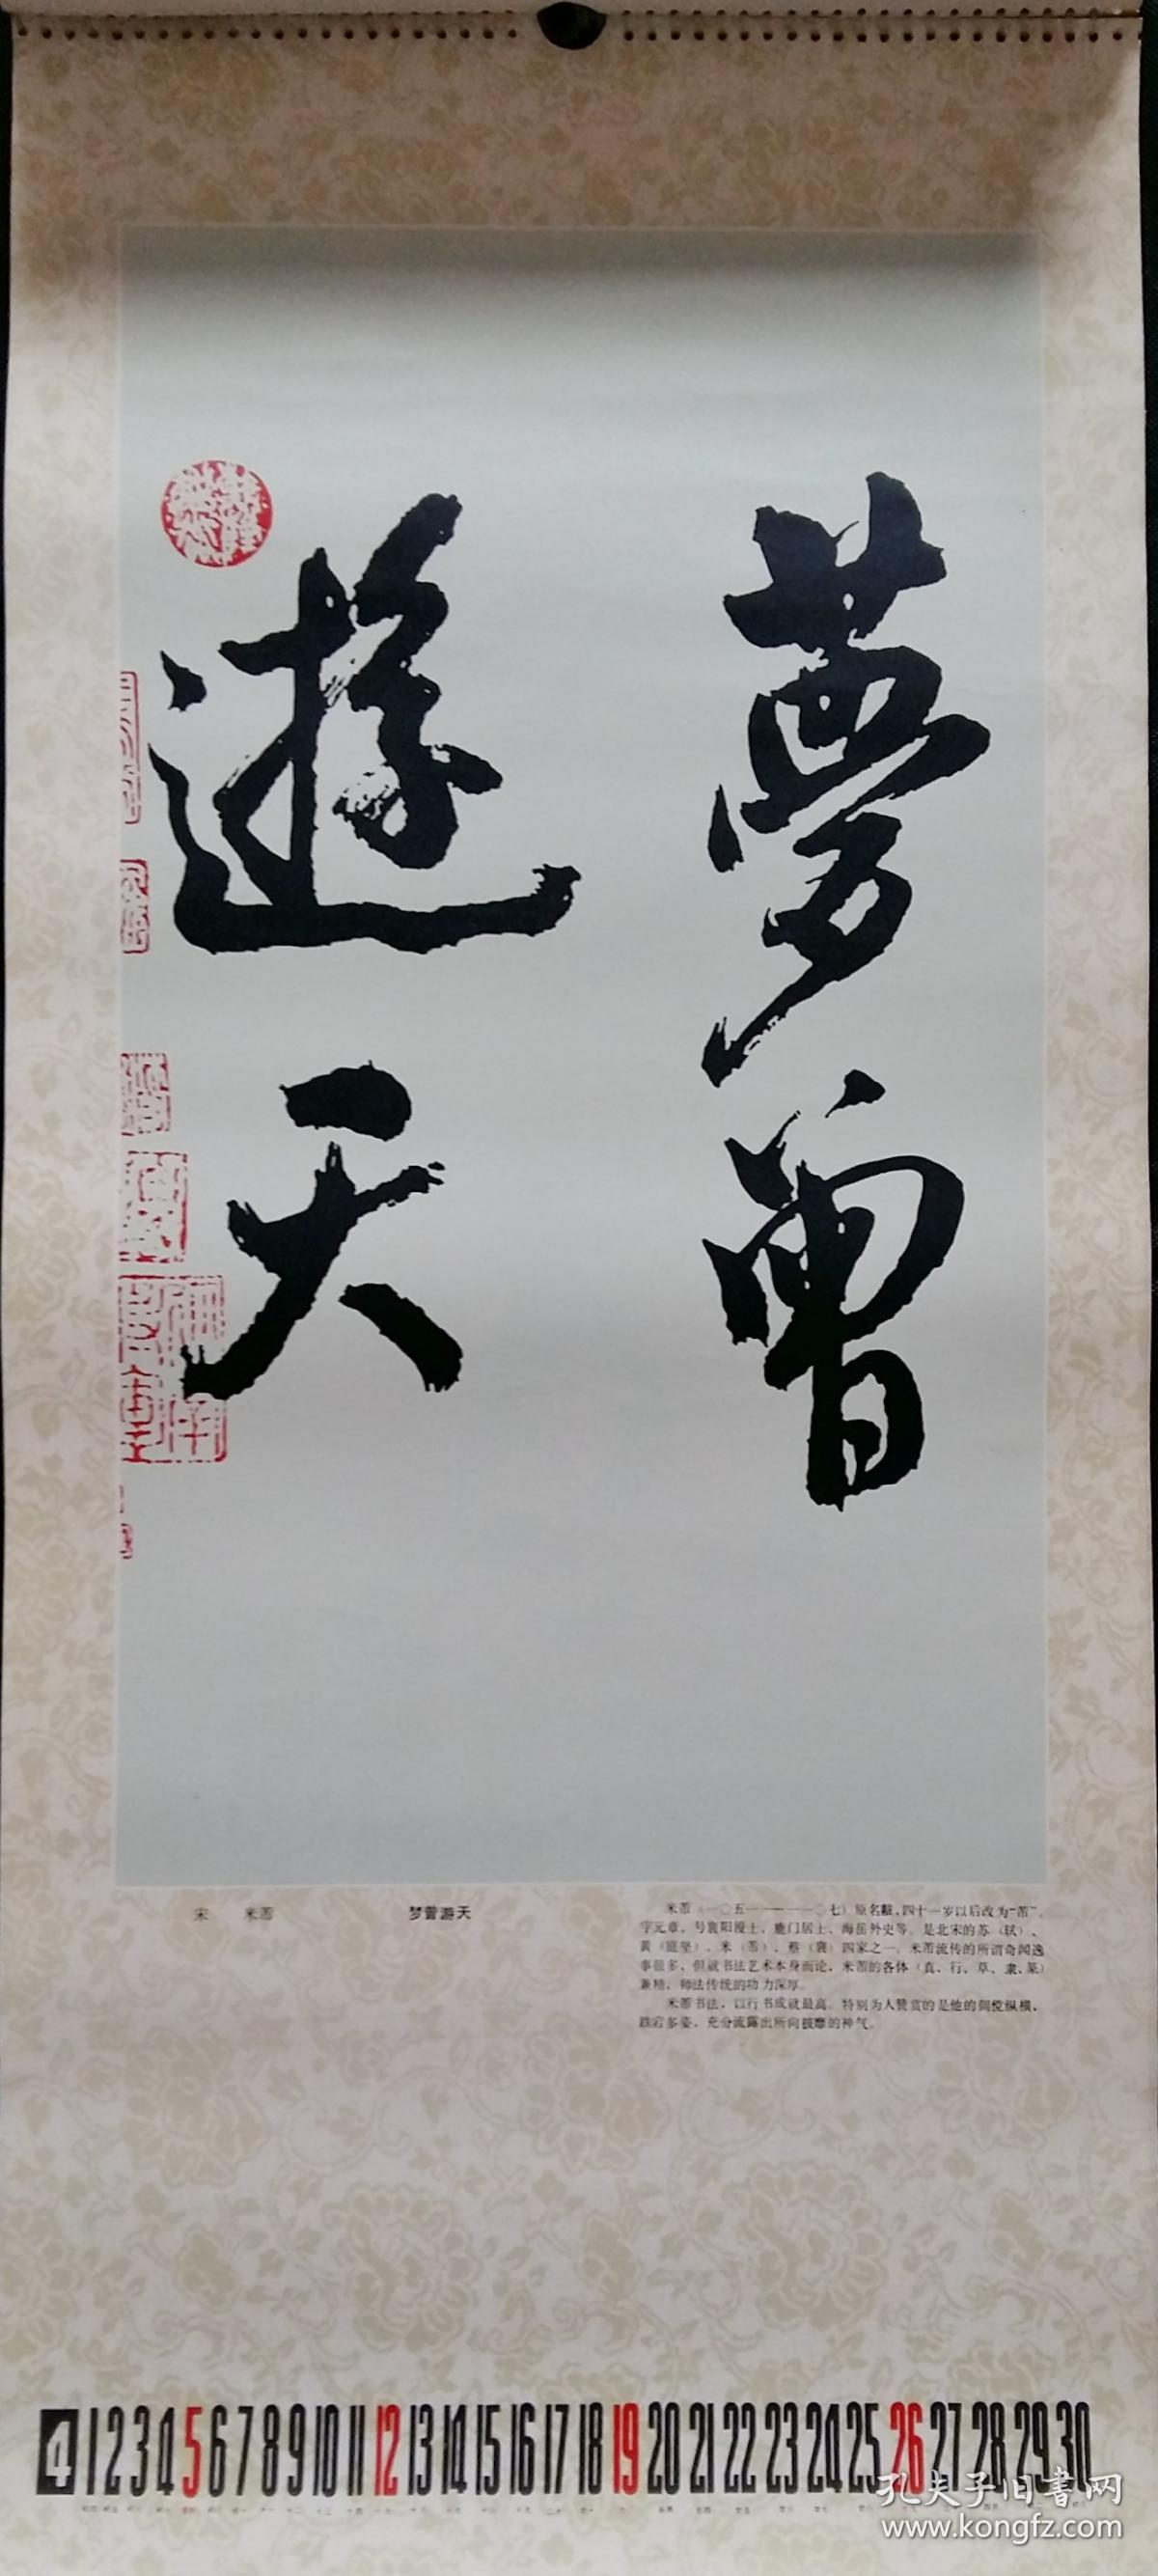 夢曾
遊天
宋 米芾 梦曾游天
米芾(一〇五一——一一〇七)原名黻,四十一岁以后改为“芾”。
字元章,号襄阳漫士、鹿门居士、海岳外史等。是北宋的苏(轼)、
黄(庭坚)、米(芾)、蔡(襄)四家之一。米芾流传的所谓奇闻逸
事很多,但就书法艺术本身而论,米芾的各体(真、行、草、隶、篆)
兼精,师法传统的功力深厚。
米芾书法,以行书成就最高。特别为人赞赏的是他的倜傥纵横,
跌宕多姿,充分流露出所向披靡的神气。
4 1 2 3 4 5 6 7 8 9 10 11 12 13 14 15 16 17 18 19 20 21 22 23 24 25 26 27 28 29 30
孔夫子旧書网
www.kongfz.com